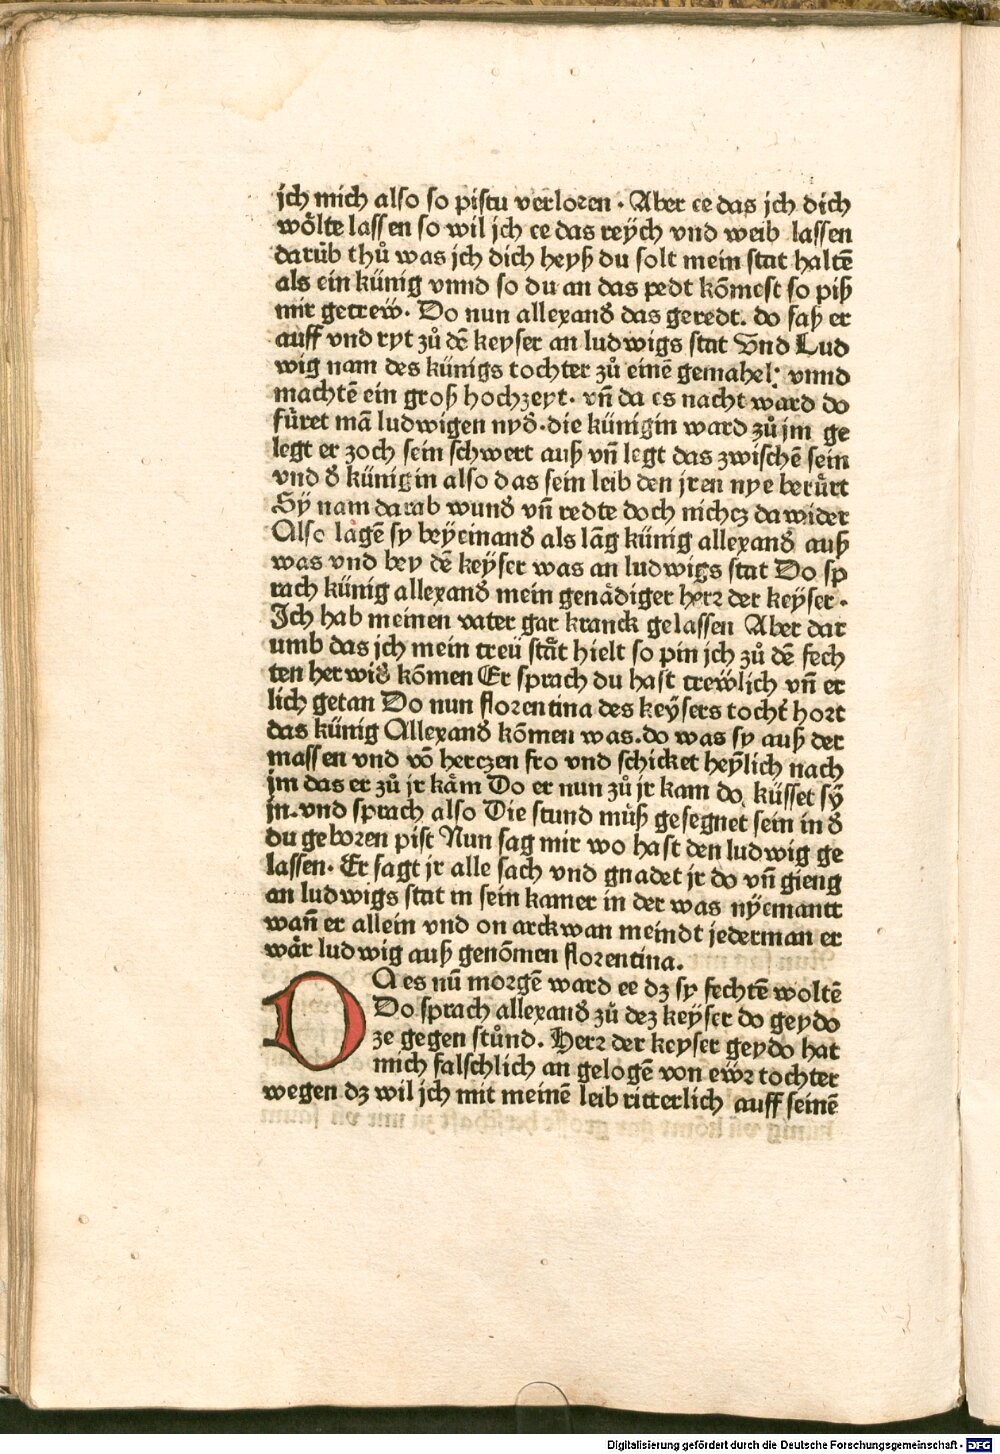 jch mich also so pistu verloren · Aber ee das jch dich
wölte lassen so wil jch ee das reÿch vnd weib lassen
darüb thů was jch dich heyß du solt mein stat haltē
als ein künig vnnd so du an das pedt kōmest so piß
mir getrew̎. Do nun allexanđ das geredt. do saß er
auff vnd ryt zů dē keyser an ludwigs stat Vnd Lud
wig nam des künigs tochter zů einē gemahel: vnnd
machtē ein groß hochzeyt. vn̄ da es nacht ward do
füret mā ludwigen nyđ.die künigin ward zů jm ge
legt er zoch sein schwert auß vn̄ legt das zwischē sein
vnd đ künigin also das sein leib den jren nye berürt
Sÿ nam darab wunđ vn̄ redte doch nichcz dawider
Also lagē sy beÿeinanđ als lāg künig allexanđ auß
was vnd bey dē keÿser was an ludwigs stat Do sp
rach künig allexanđ mein genädiger herꝛ der keÿser.
Ich hab meinen vater gar kranck gelassen Aber dar
umb das jch mein treü stät hielt so pin jch zů dē fech
ten herwiđ kōmen Er sprach du hast trew̎lich vn̄ er
lich getan Do nun florentina des keÿsers tocht̄ hort
das künig Allexanđ kōmen was.do was sy auß der
massen vnd vō herczen fro vnd schicket heÿlich nach
jm das er zů jr käm Do er nun zů jr kam do küsset sÿ
jn.vnd sprach also Die stund müß gesegnet sein in đ
du geboren pist Nun sag mir wo hast den ludwig ge
lassen. Er sagt jr alle sach vnd gnadet jr do vn̄ gieng
an ludwigs stat in sein kamer in der was nÿemantt
wan̄ er allein vnd on arckwan meindt jederman er
wär ludwig auß genōmen florentina.
DA es nū morgē ward ee dz sy fechtē woltē
Do sprach allexanđ zů dez keÿser do geydo
ze gegen stůnd. Herꝛ der keyser geydo hat
mich falschlich an gelogē von ew̎ꝛ tochter
wegen dz wil jch mit meinē leib ritterlich auff seinē
Digitalisierung gefördert durch die Deutsche Forschungsgemeinschaft - DFG